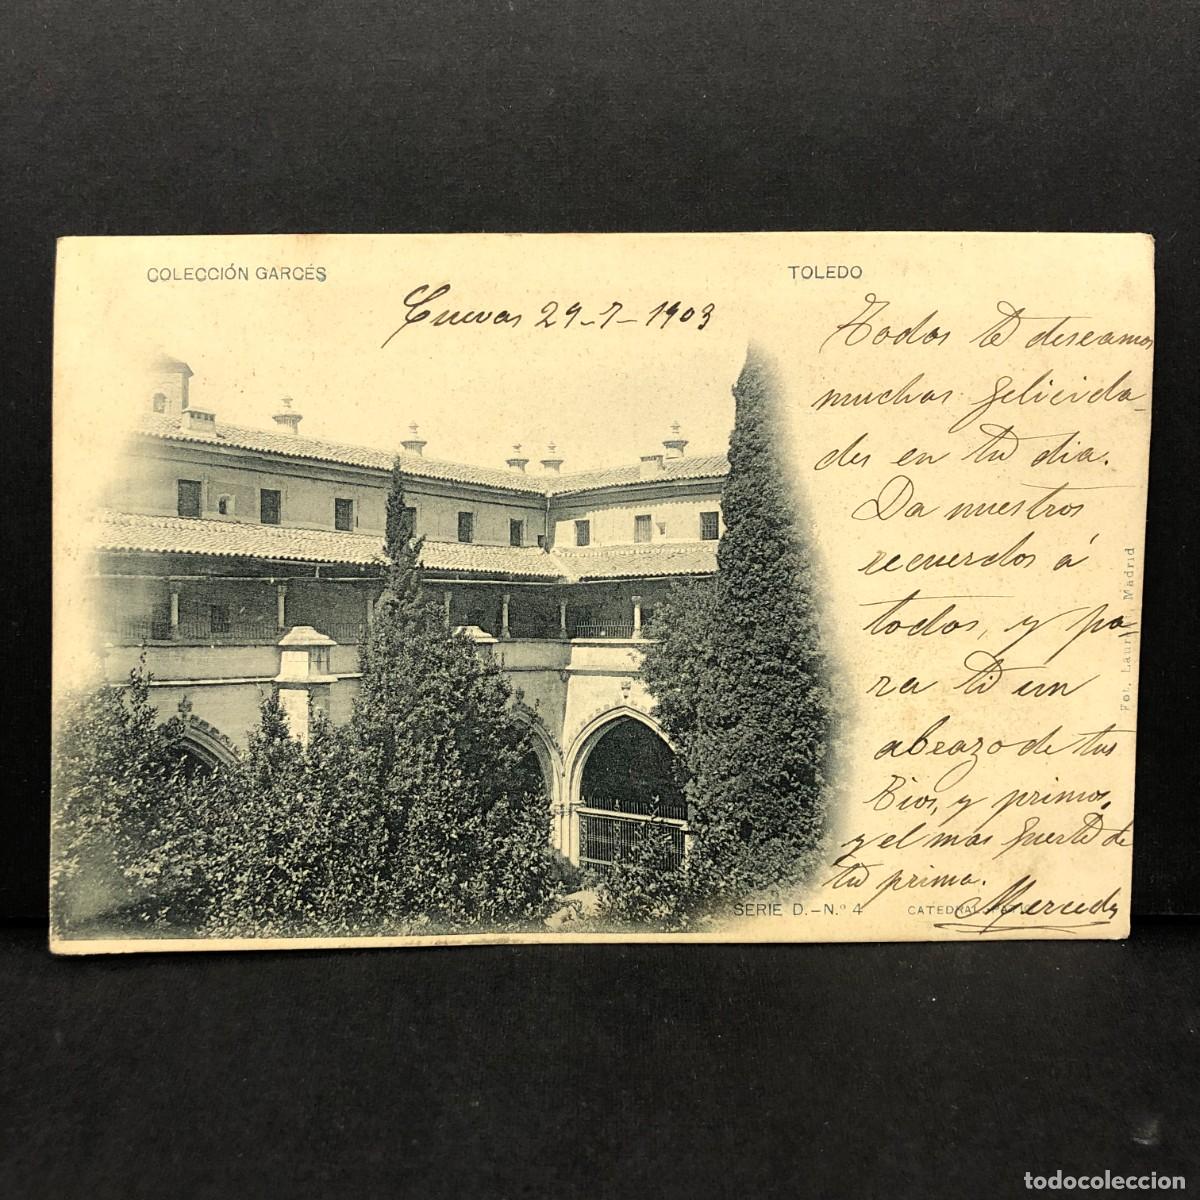 COLECCIÓN GARCÉS
TOLEDO
Cuevas 29-7-1903
Todos te deseamos
muchas felicida-
des en tu dia.
Da nuestros
recuerdos á
todos, y pa-
ra ti un
abrazo de tus
tios, y primos,
y el mas fuerte de
tu prima.
Mercedes
Fot. Laur Madrid
SERIE D.-N.º 4
CATEDRAL
todocoleccion